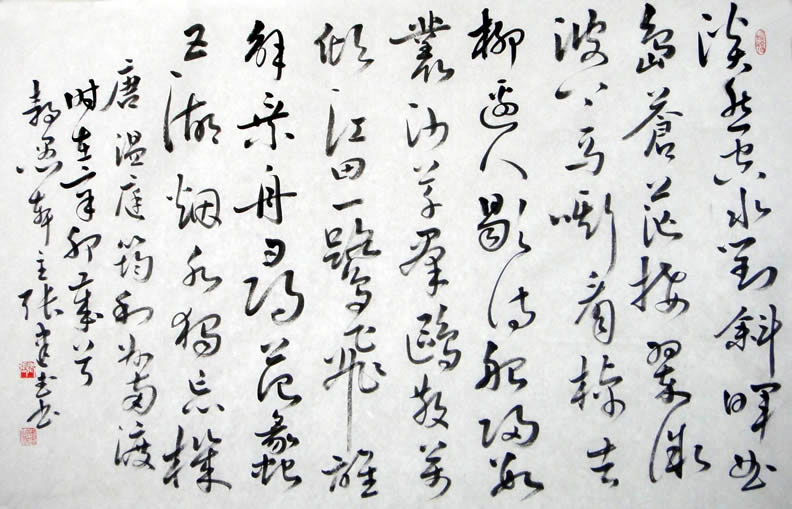 淡然空水對斜暉曲
島蒼茫接翠微
波上马嘶看棹去
柳邊人歇待船歸數
叢沙草羣鷗散萬
頃江田一鷺飛誰
解乘舟尋范蠡
五湖烟水獨忘機
唐溫庭筠利州南渡
时在辛卯歲
軒主張書